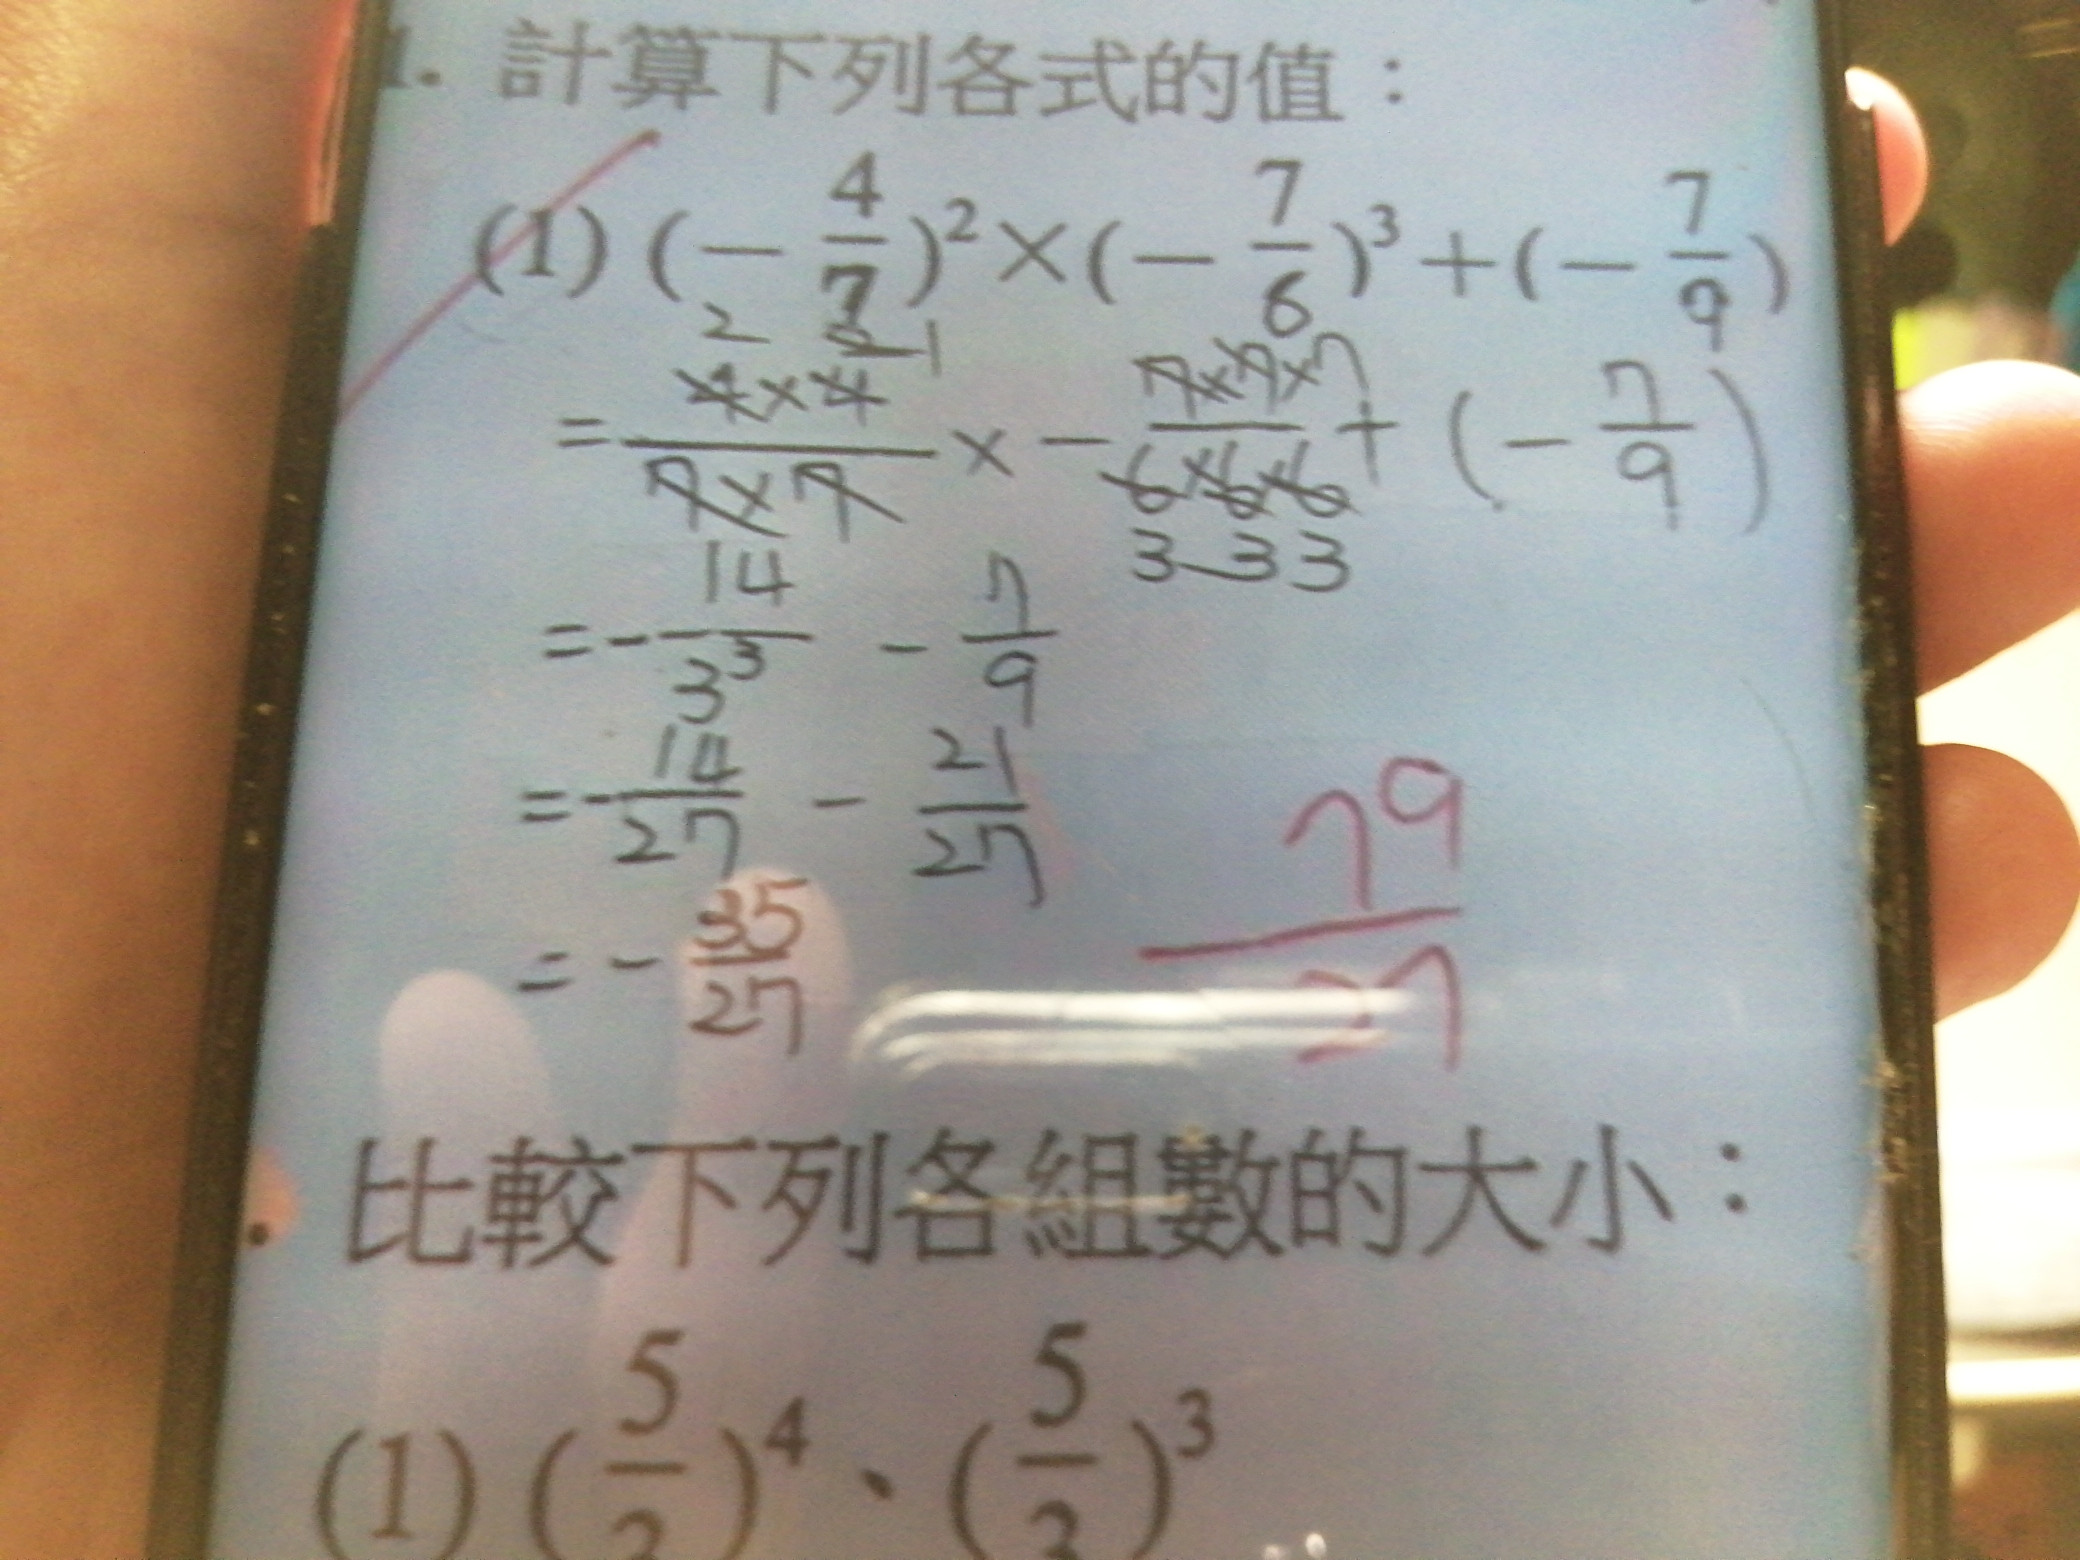 1. 計算下列各式的值：
(1) (－4/7)²×(－7/6)³＋(－7/9)
= 4×4/7×7 × - 7×7×7/6×6×6 + (-7/9)
2 2 1
3 3 3
= - 14/3³ - 7/9
= - 14/27 - 21/27
= - 35/27
79/27
比較下列各組數的大小：
(1) (5/3)⁴、(5/3)³